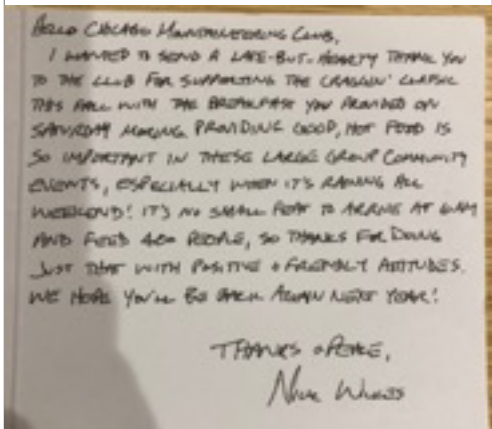 Hello Chicago Mountaineering Club,
I wanted to send a late-but-hearty thank you
to the club for supporting the Craggin' Classic
this fall with the breakfast you provided on
Saturday morning. Providing good, hot food is
so important in these large group community
events, especially when it's raining all
weekend! It's no small feat to arrive at 6am
and feed 400 people, so thanks for doing
just that with positive + friendly attitudes.
We hope you'll be back again next year!
Thanks + Peace,